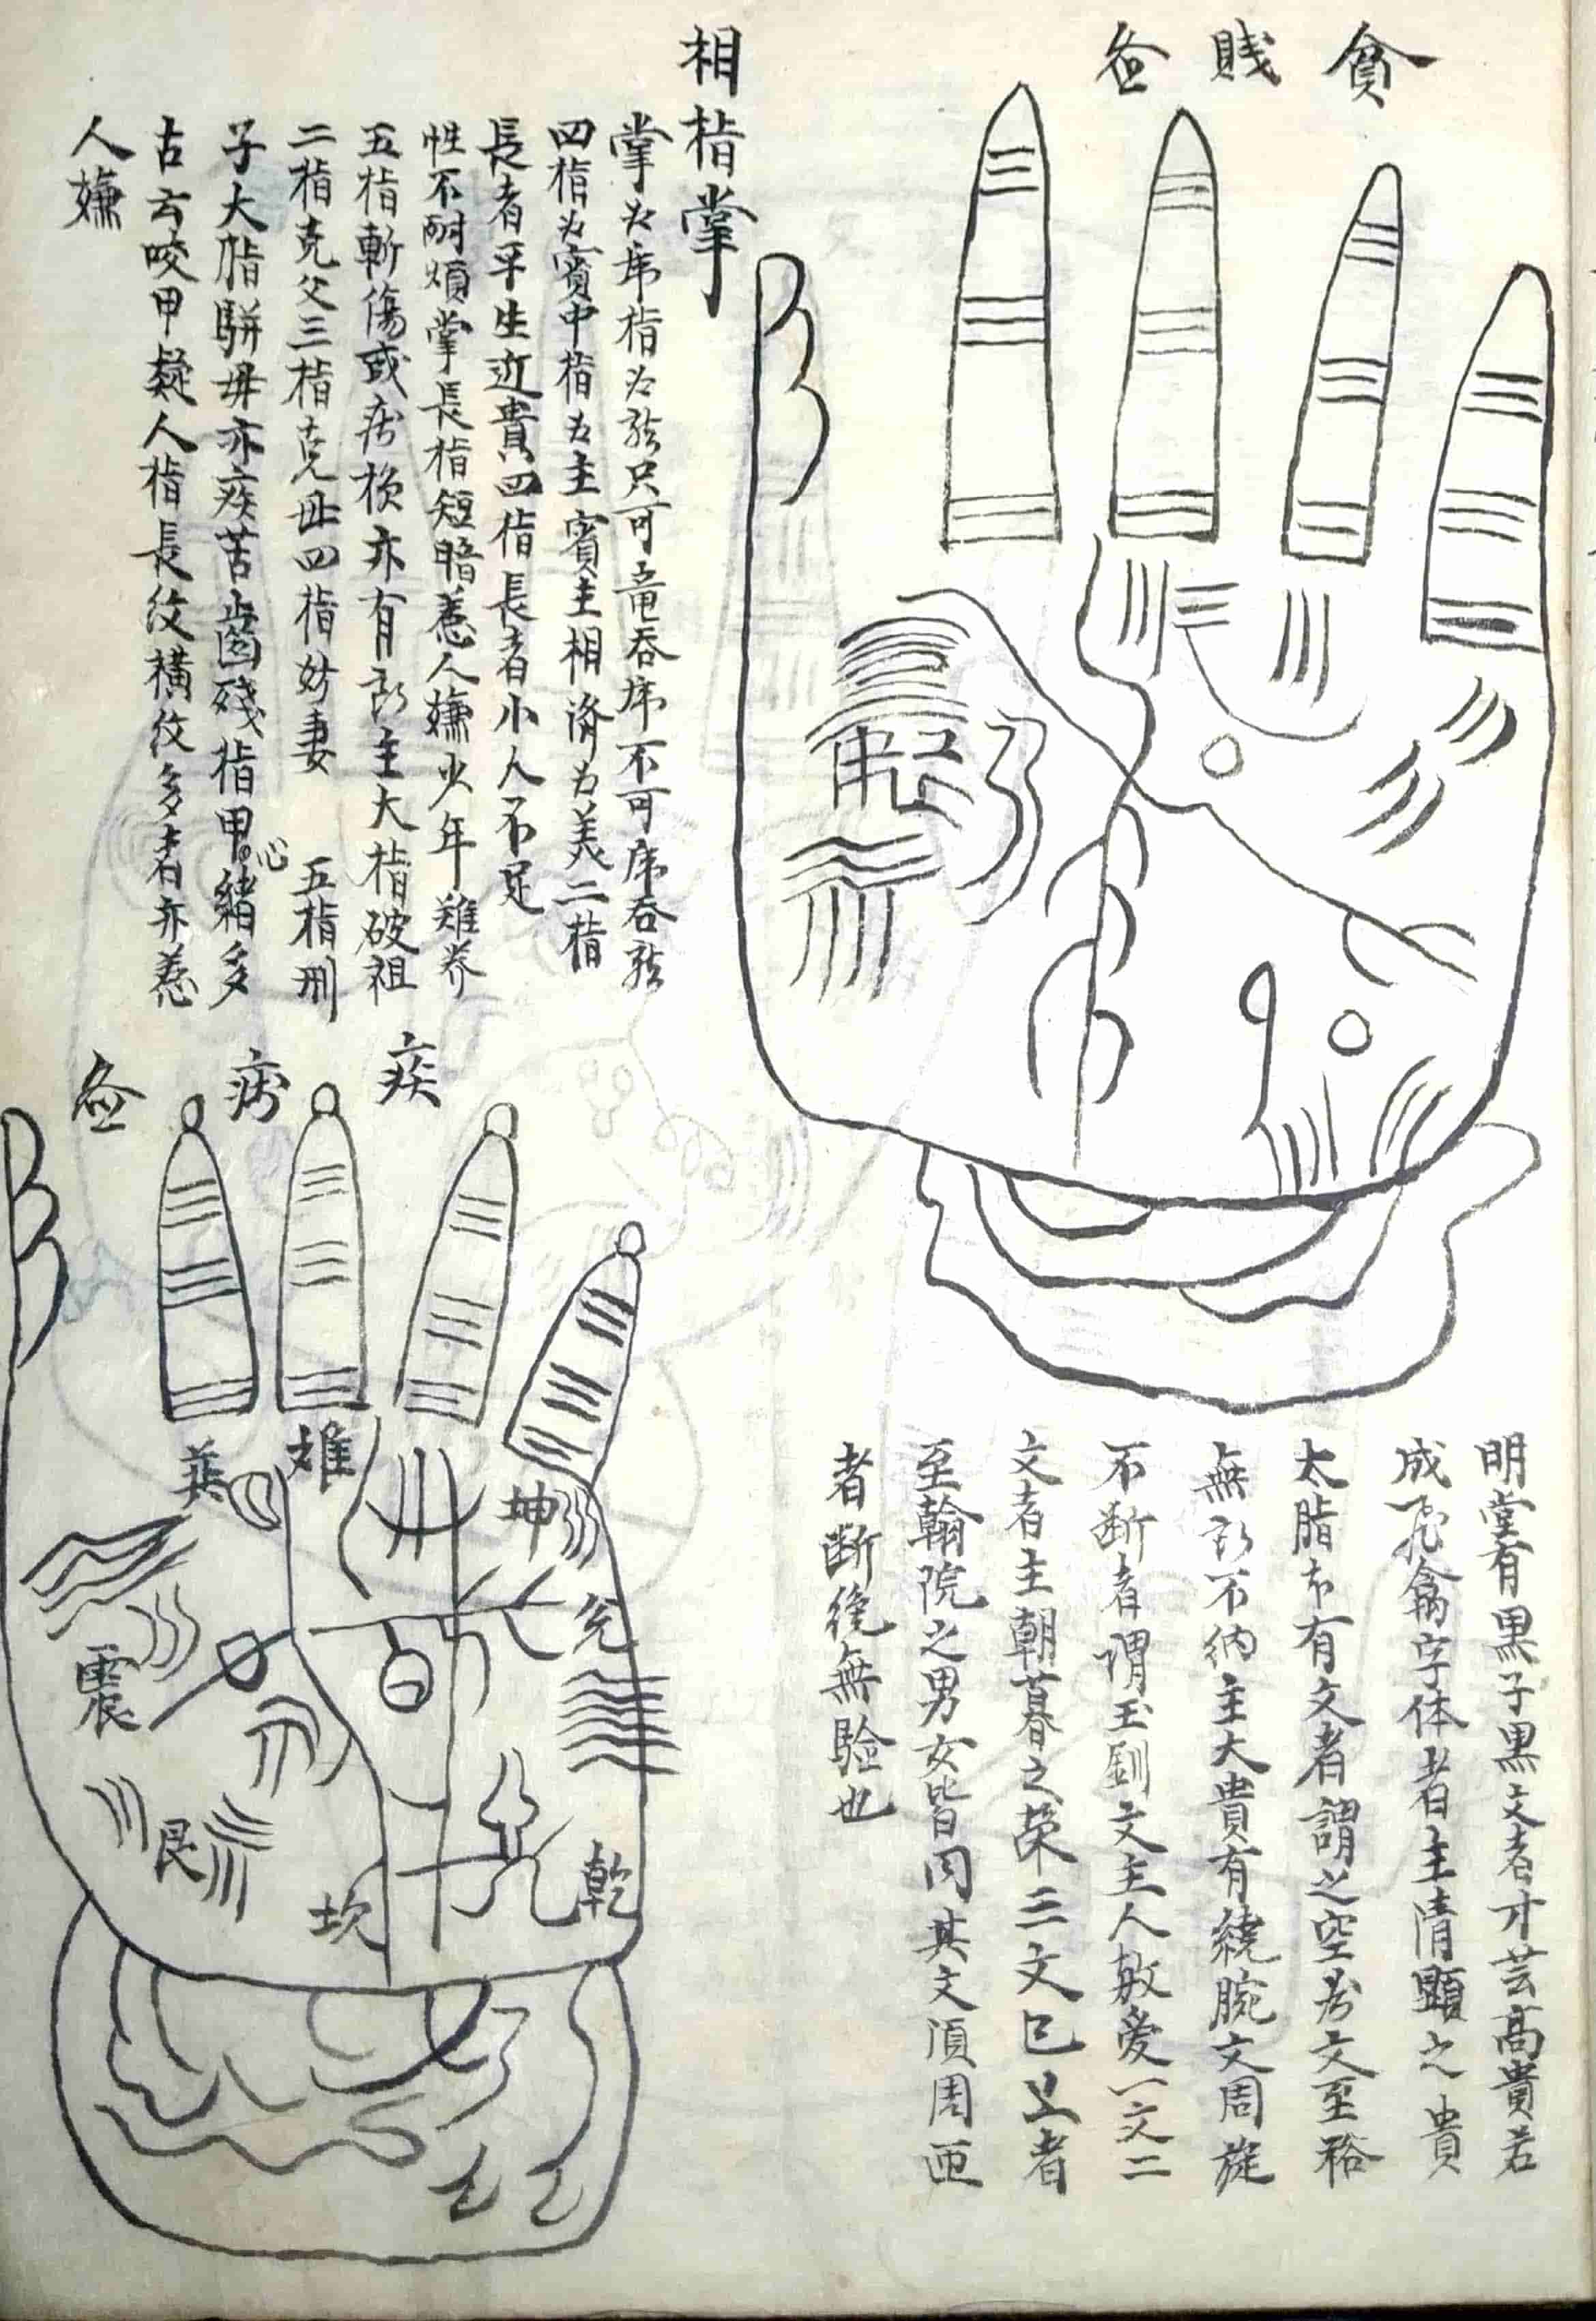 貪賎𠫤
相指掌
掌为虎指为龍只可竜吞虎不可虎吞龍
四指为賓中指为主賓主相済为美二指
長者平生近貴四指長者小人不足
性不耐煩掌長指短暗惹人嫌少年难养
五指斬傷或疾损亦有主大指破祖
二指克父三指克母四指妨妻 五指刑
子大脂駢毋亦疾苦齒残指甲心緒多
古云咬甲疑人指長纹横纹多者亦惹
人嫌
疾病
英
雄
坤
兑
震
艮
坎
乾
明堂有黒子黒文者才芸高貴若
成飛禽字体者主清顕之貴
太脂本有文者謂之空文至裕
無不纳主大貴有繞腕文周旋
不断者谓玉釧文主人敬爱一文二
文者主朝暮之荣三文已上者
至翰院之男女皆同其文湏周匝
者断绝無驗也